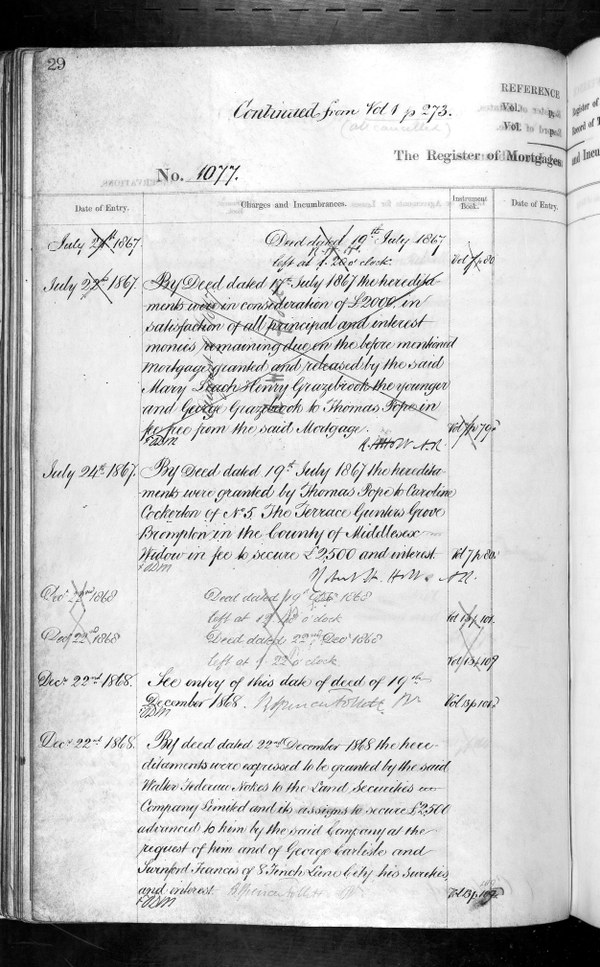 29
REFERENCE
Continued from Vol 1 p 273.
Vol. p.
(all cancelled)
Vol. p.
The Register of Mortgages
No. 1077.
Date of Entry. Charges and Incumbrances. Instrument Book. Date of Entry.
July 24th 1867. Deed dated 19th July 1867
left at o'clock. Vol 7 p 80
July 24th 1867. By Deed dated 17th July 1867 the heredita-
ments were in consideration of £2000. in
satisfaction of all principal and interest
monies remaining due on the before mentioned
Mortgage granted and released by the said
Mary Leach Henry Grazebrook the younger
and George Grazebrook to Thomas Pope in
fee free from the said Mortgage. Vol 7 p 79
July 24th 1867. By Deed dated 19th July 1867 the heredita-
ments were granted by Thomas Pope to Caroline
Cockerton of No 5. The Terrace Gunters Grove
Brompton in the County of Middlesex
Widow in fee to secure £2,500 and interest. Vol 7 p 80
Decr 22nd 1868 Deed dated 19th Decr 1868
left at o'clock Vol 13 p 101
Decr 22nd 1868 Deed dated 22nd Decr 1868
left at 1.22 o'clock. Vol 13 p 109
Decr 22nd 1868. See entry of this date of deed of 19th
December 1868. Vol 13 p 101
Decr 22nd 1868. By deed dated 22nd December 1868 the here-
ditaments were expressed to be granted by the said
Walter Nokes to the Land Securities
Company Limited and its assigns to secure £2,500
advanced to him by the said Company at the
request of him and of George Carlisle and
Swinford Francis of 8 Finch Lane City his Sureties
and interest Vol 13 p 109